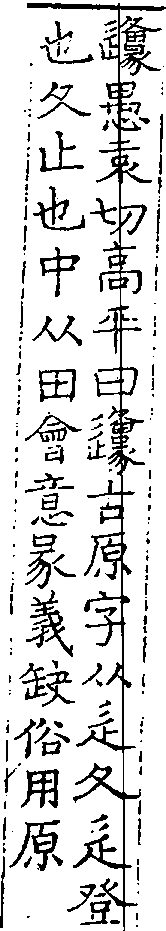 邍愚袁切高平曰邍古原字从辵夂辵登
也夂止也中从田會意彖義缺俗用原